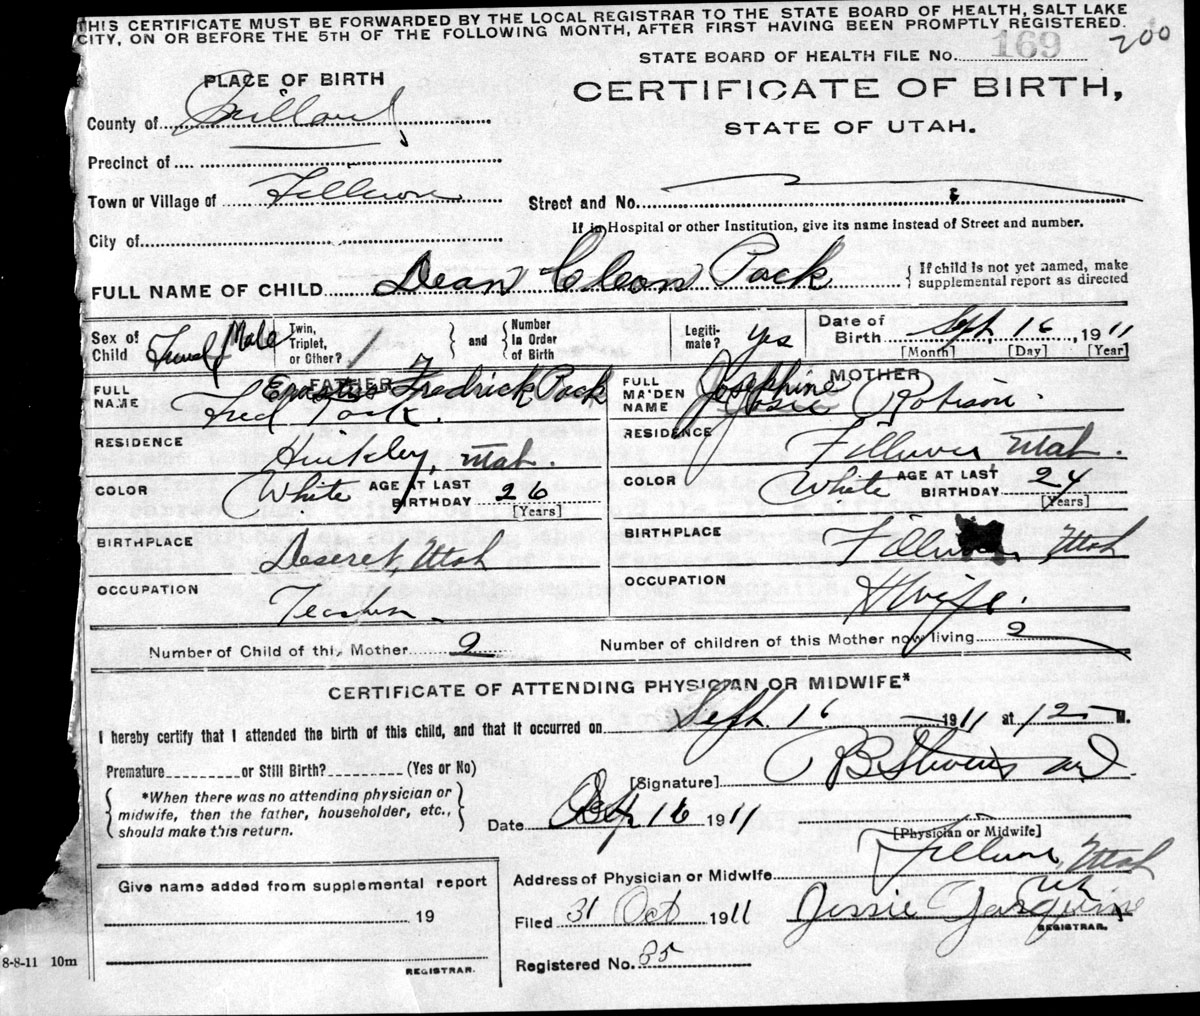 THIS CERTIFICATE MUST BE FORWARDED BY THE LOCAL REGISTRAR TO THE STATE BOARD OF HEALTH, SALT LAKE
CITY, ON OR BEFORE THE 5TH OF THE FOLLOWING MONTH, AFTER FIRST HAVING BEEN PROMPTLY REGISTERED.
200
STATE BOARD OF HEALTH FILE No. 169
PLACE OF BIRTH
CERTIFICATE OF BIRTH,
County of Millard
STATE OF UTAH.
Precinct of
Town or Village of Fillmore
Street and No.
If in Hospital or other Institution, give its name instead of Street and number.
City of
FULL NAME OF CHILD Dean Cleon Pack { If child is not yet named, make supplemental report as directed
Sex of Child Male Twin, Triplet, or Other? / } and { Number In Order of Birth Legiti-mate? yes Date of Birth Sept. 16, 1911
[Month] [Day] [Year]
FATHER MOTHER
FULL NAME Fredrick Pack
Fred Pack.
FULL MAIDEN NAME Josephine
Josie Robison.
RESIDENCE Hinkley, Utah.
RESIDENCE Fillmore Utah.
COLOR White AGE AT LAST BIRTHDAY 26 [Years]
COLOR White AGE AT LAST BIRTHDAY 24 [Years]
BIRTHPLACE Deseret, Utah
BIRTHPLACE Fillmore, Utah
OCCUPATION Teacher.
OCCUPATION H Wife.
Number of Child of this Mother 2 Number of children of this Mother now living 2
CERTIFICATE OF ATTENDING PHYSICIAN OR MIDWIFE*
I hereby certify that I attended the birth of this child, and that it occurred on Sept. 16 1911 at 12 M.
Premature or Still Birth? (Yes or No)
[Signature] Stevens
{ *When there was no attending physician or midwife, then the father, householder, etc., should make this return. }
Date 16 1911
[Physician or Midwife]
Address of Physician or Midwife Fillmore, Utah
Give name added from supplemental report
19
Filed 31 Oct 1911 Jessie
REGISTRAR.
Registered No. 85
REGISTRAR.
8-8-11 10m